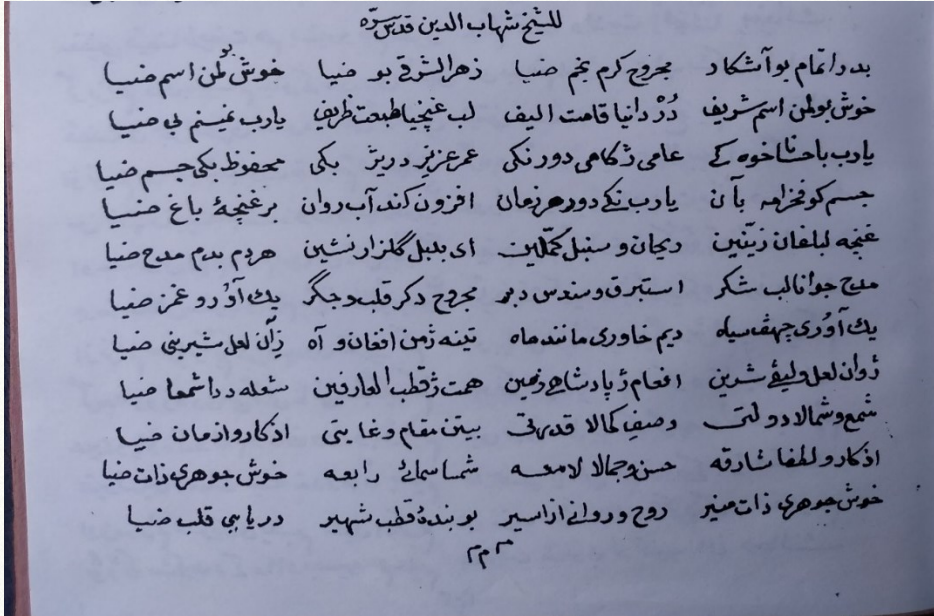 للشيخ شهاب الدين قدس سره
بدرا تمام بو آشكار مجروح كرم نجم ضيا زهر الشرقى بو ضيا خوش بو لمن اسم ضيا
خوش بو لمن اسم شريف دُرْ دانيا قامت اليف لب غنچيا طبعت ظريف يارب غمينم بى ضيا
يارب باحسانا خوه كے عامى ژ كاهى دور نكى عمر عزيز دريژ بكى محفوظ بكى جسم ضيا
جسم كو فخرا مه بآن يارب نكے دور هر زمان افزون كند آب روان بر غنچهٔ باغ ضيا
غنچه لبلفان زينين ريحان و سنبل كملين اى بلبل گلزار نشين هردم بدم مدح ضيا
مدح جوانا لب شكر استبرق و سندس دبر مجروح دكر قلب و جگر يك آوُر و غمز ضيا
يك آوُرى چهف سياه ديم خاورى مانند ماه تينه ژمن افغان و آه ژآن لعل شيرينى ضيا
ژوان لعل و ليفے شرين افعام ژ پادشاهے زمين همت ژ قطب العارفين شعله ددا شمعا ضيا
شمع و شمالا دولتى وصف كمالا قدرتى بيتن مقام و غايتى اذكار و ازمان ضيا
اذكار و لطفا شارقه حسن و جمالا لامعه شمسا سمائے رابعه خوش جوهرى ذات ضيا
خوش جوهرى ذات منير روح و روانے از اسير بو بندهٔ قطب شهير دريايى قلب ضيا
م م م